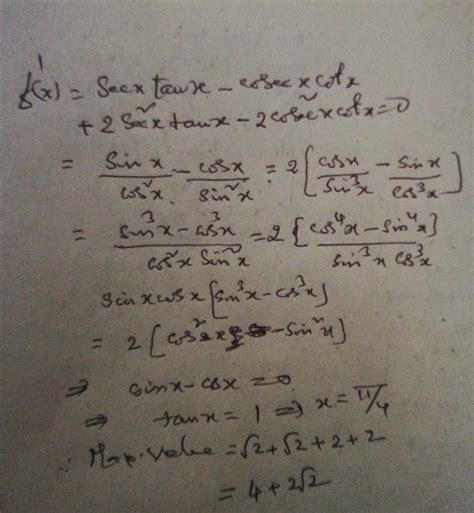 f'(x) = Secx tanx - cosecx cotx
+ 2 Sec²x tanx - 2 cosec²x cotx = 0
= Sinx/cos²x - cosx/sin²x = 2 [cosx/sin³x - sinx/cos³x]
= (sin³x - cos³x)/(cos²x sin²x) = 2 [cos⁴x - sin⁴x]/(sin³x cos³x)
sinx cosx [sin³x - cos³x]
= 2 [cos²x - sin²x]
⇒ sinx - cosx = 0
⇒ tanx = 1 ⇒ x = π/4
∴ Value = √2 + √2 + 2 + 2
= 4 + 2√2